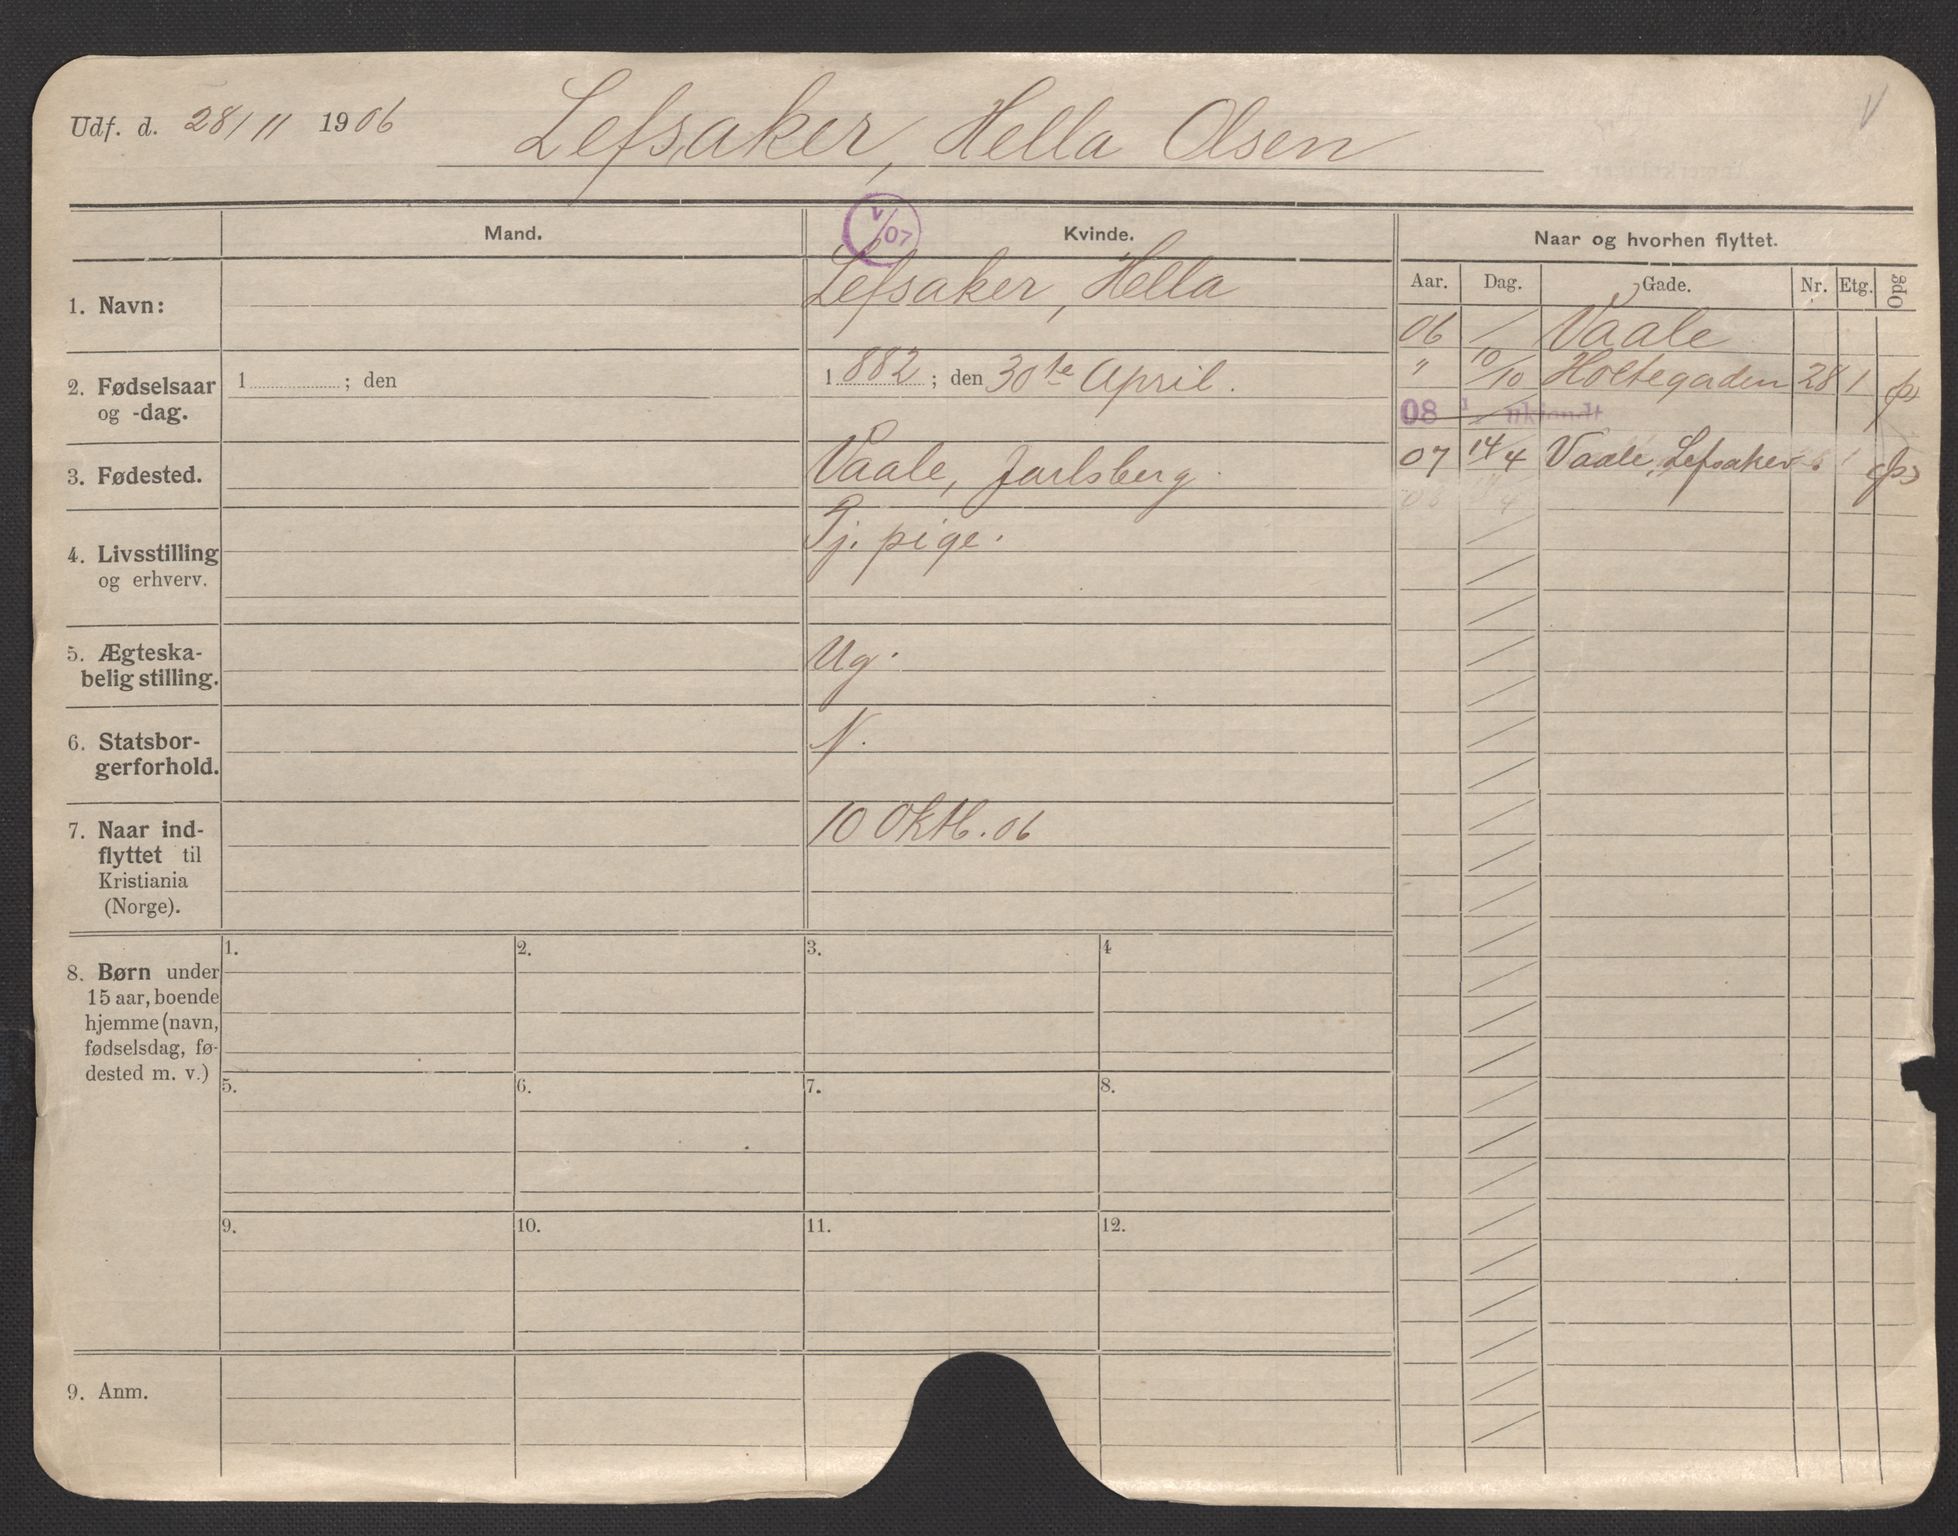 Udf. d. 28/11 1906 Lefsaker, Hella Olsen V
Mand.
V/07
Kvinde.
Naar og hvorhen flyttet.
Aar. Dag. Gade. Nr. Etg. Opg
1. Navn:
Lefsaker, Hella
2. Fødselsaar
og -dag.
1 ; den
1 882 ; den 30te April.
3. Fødested.
Vaale, Jarlsberg
4. Livsstilling
og erhverv.
Tj. pige.
5. Ægteska-
belig stilling.
Ug.
6. Statsbor-
gerforhold.
N.
7. Naar ind-
flyttet til
Kristiania
(Norge).
10 Oktb. 06
06 / Vaale
" 10/10 Holtegaden 28 1
08 1/ ukjendt
07 14/4 Vaale, Lefsaker
8. Børn under
15 aar, boende
hjemme (navn,
fødselsdag, fø-
dested m. v.)
1. 2. 3. 4
5. 6. 7. 8.
9. 10. 11. 12.
9. Anm.